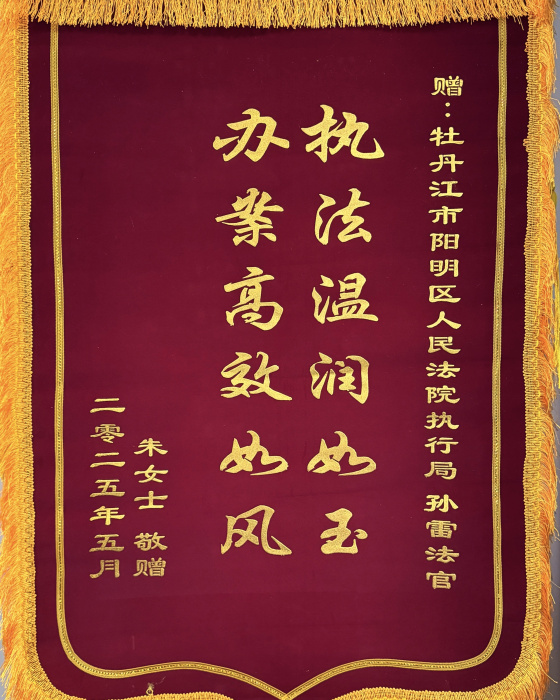 赠：牡丹江市阳明区人民法院执行局 孙雷法官
执法温润如玉
办案高效如风
朱女士 敬赠
二零二五年五月